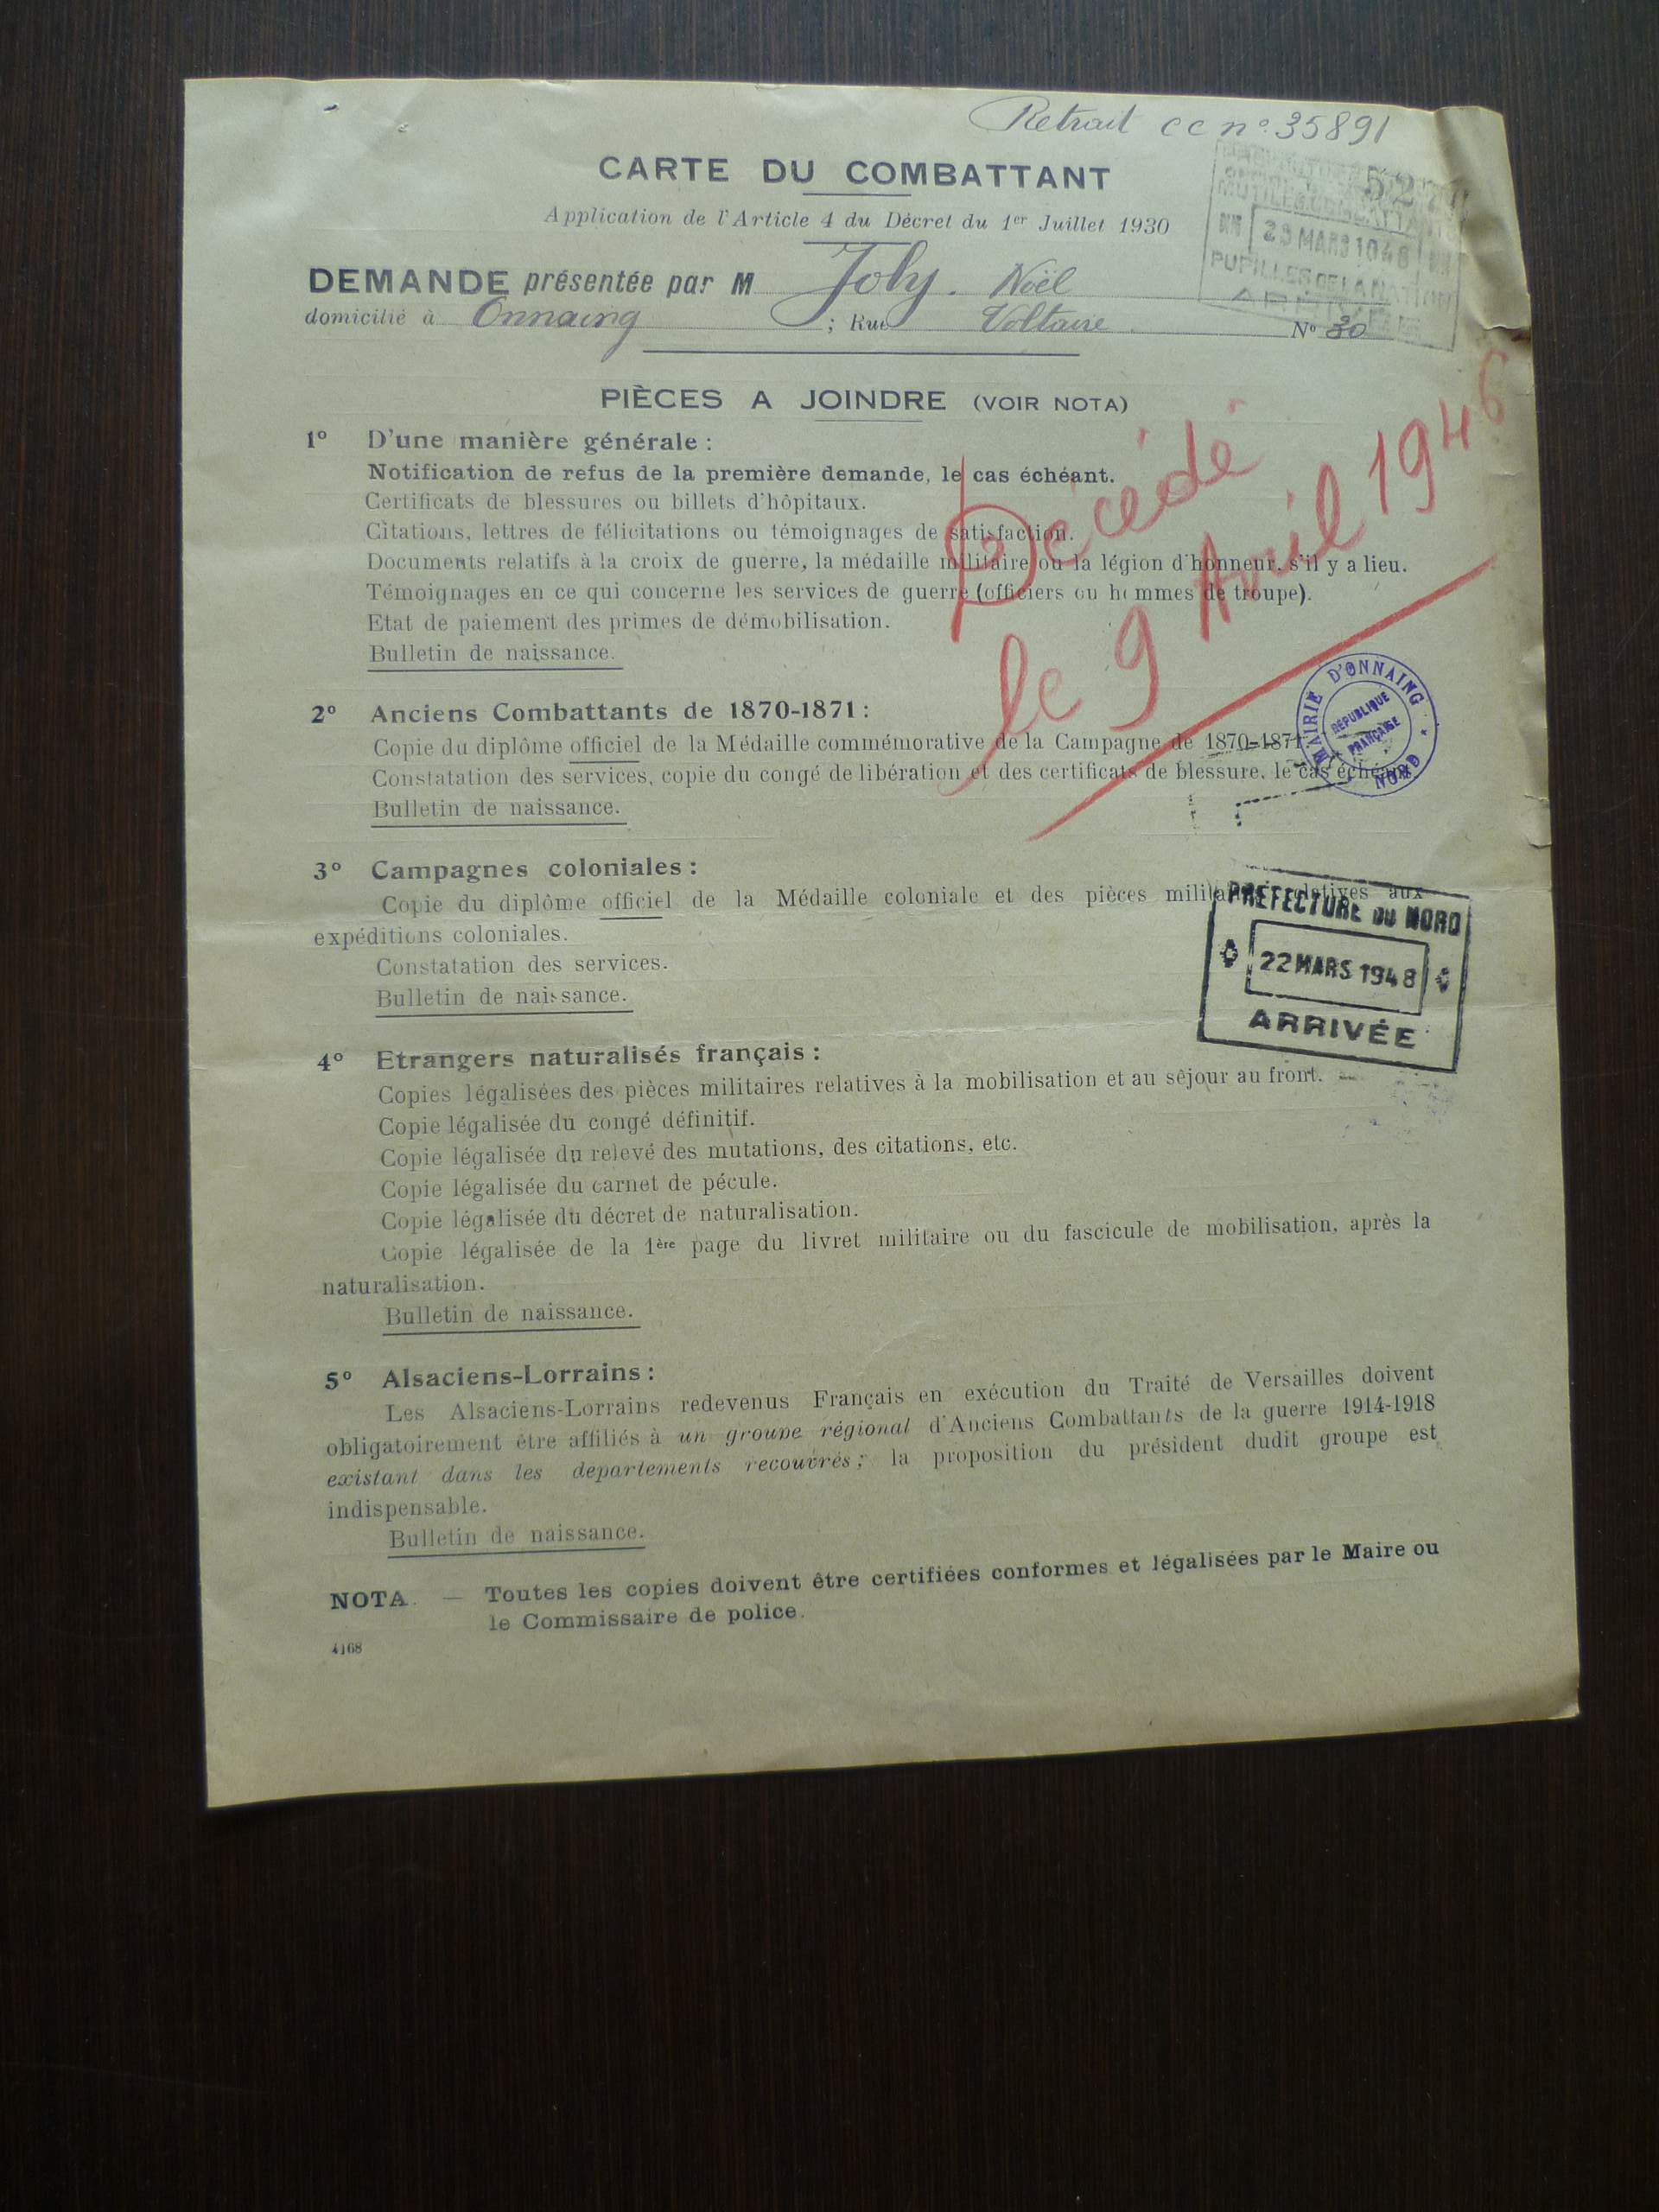 Retrait cc n° 35891
CARTE DU COMBATTANT
Application de l'Article 4 du Décret du 1er Juillet 1930
MUTILÉS COMBATTANTS
23 MARS 1948
PUPILLES DE LA NATION
ARRIVÉE
DEMANDE présentée par M Joly. Noël
domicilié à Onnaing ; Rue Voltaire. N° 30
PIÈCES A JOINDRE (VOIR NOTA)
1° D'une manière générale :
Notification de refus de la première demande, le cas échéant.
Certificats de blessures ou billets d'hôpitaux.
Citations, lettres de félicitations ou témoignages de satisfaction.
Documents relatifs à la croix de guerre, la médaille militaire ou la légion d'honneur, s'il y a lieu.
Témoignages en ce qui concerne les services de guerre (officiers ou hommes de troupe).
Etat de paiement des primes de démobilisation.
Bulletin de naissance.
Décédé
le 9 Avril 1946
2° Anciens Combattants de 1870-1871 :
Copie du diplôme officiel de la Médaille commémorative de la Campagne de 1870-1871
Constatation des services, copie du congé de libération et des certificats de blessure, le cas échéant.
Bulletin de naissance.
MAIRIE D'ONNAING
RÉPUBLIQUE
FRANÇAISE
NORD
3° Campagnes coloniales :
Copie du diplôme officiel de la Médaille coloniale et des pièces militaires relatives aux
expéditions coloniales.
Constatation des services.
Bulletin de naissance.
PRÉFECTURE DU NORD
22 MARS 1948
ARRIVÉE
4° Etrangers naturalisés français :
Copies légalisées des pièces militaires relatives à la mobilisation et au séjour au front.
Copie légalisée du congé définitif.
Copie légalisée du relevé des mutations, des citations, etc.
Copie légalisée du carnet de pécule.
Copie légalisée du décret de naturalisation.
Copie légalisée de la 1ère page du livret militaire ou du fascicule de mobilisation, après la
naturalisation.
Bulletin de naissance.
5° Alsaciens-Lorrains :
Les Alsaciens-Lorrains redevenus Français en exécution du Traité de Versailles doivent
obligatoirement être affiliés à un groupe régional d'Anciens Combattants de la guerre 1914-1918
existant dans les departements recouvrés ; la proposition du président dudit groupe est
indispensable.
Bulletin de naissance.
NOTA. — Toutes les copies doivent être certifiées conformes et légalisées par le Maire ou
le Commissaire de police.
4168